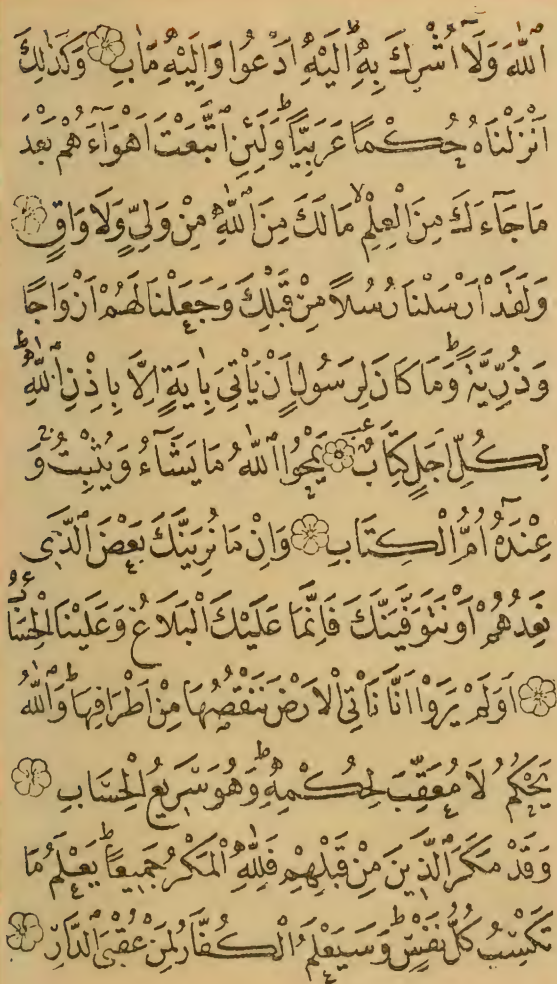 اَللّٰهَ وَلَٓا اُشْرِكَ بِهٖۜ اِلَيْهِ اَدْعُوا وَاِلَيْهِ مَاٰبِ وَكَذٰلِكَ
اَنْزَلْنَاهُ حُكْمًا عَرَبِيًّاۜ وَلَئِنِ اتَّبَعْتَ اَهْوَٓاءَهُمْ بَعْدَ
مَا جَٓاءَكَ مِنَ الْعِلْمِۙ مَا لَكَ مِنَ اللّٰهِ مِنْ وَلِيٍّ وَلَا وَاقٍ
وَلَقَدْ اَرْسَلْنَا رُسُلًا مِنْ قَبْلِكَ وَجَعَلْنَا لَهُمْ اَزْوَاجًا
وَذُرِّيَّةًۜ وَمَا كَانَ لِرَسُولٍ اَنْ يَأْتِيَ بِاٰيَةٍ اِلَّا بِاِذْنِ اللّٰهِۜ
لِكُلِّ اَجَلٍ كِتَابٌ يَمْحُوا اللّٰهُ مَا يَشَٓاءُ وَيُثْبِتُ وَ
عِنْدَهُٓ اُمُّ الْكِتَابِ وَاِنْ مَا نُرِيَنَّكَ بَعْضَ الَّذِي
نَعِدُهُمْ اَوْ نَتَوَفَّيَنَّكَ فَاِنَّمَا عَلَيْكَ الْبَلَاغُ وَعَلَيْنَا الْحِسَابُ
اَوَلَمْ يَرَوْا اَنَّا نَأْتِي الْاَرْضَ نَنْقُصُهَا مِنْ اَطْرَافِهَاۜ وَاللّٰهُ
يَحْكُمُ لَا مُعَقِّبَ لِحُكْمِهٖۜ وَهُوَ سَرِيعُ الْحِسَابِ
وَقَدْ مَكَرَ الَّذِينَ مِنْ قَبْلِهِمْ فَلِلّٰهِ الْمَكْرُ جَمِيعًاۜ يَعْلَمُ مَا
تَكْسِبُ كُلُّ نَفْسٍۜ وَسَيَعْلَمُ الْكُفَّارُ لِمَنْ عُقْبَى الدَّارِ